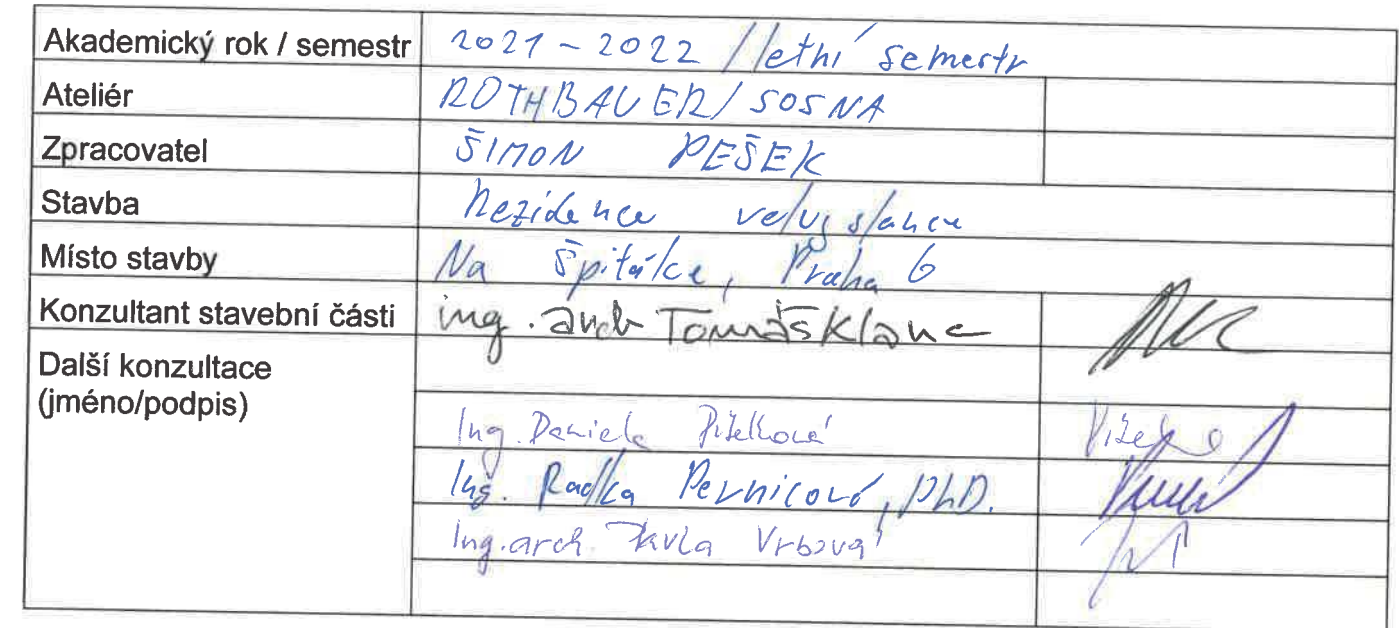 Akademický rok / semestr 2021 - 2022 / letní semestr
Ateliér ROTHBAUER / SOSNA
Zpracovatel ŠIMON PEŠEK
Stavba Rezidence velvyslance
Místo stavby Na Špitálce, Praha 6
Konzultant stavební části ing. arch Tomáš Klanc
Další konzultace
(jméno/podpis)
Ing. Daniela
Ing. Radka Pernicová, PhD.
Ing. arch. Pavla Vrbová